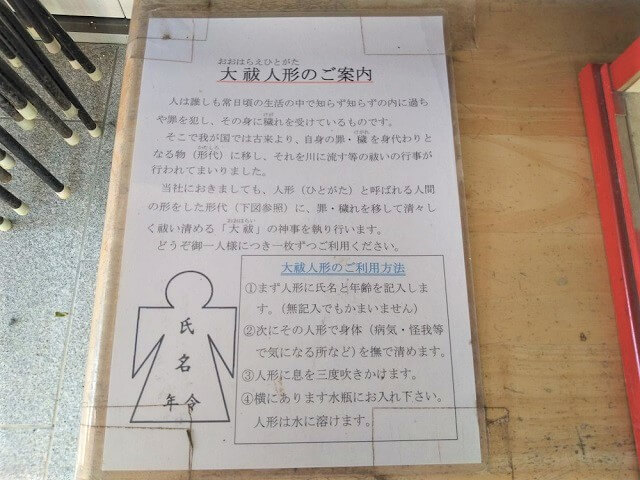 おおはらえひとがた
大祓人形のご案内
人は誰しも常日頃の生活の中で知らず知らずの内に過ち
や罪を犯し、その身に穢れを受けているものです。
そこで我が国では古来より、自身の罪・穢を身代わりと
なる物（形代）に移し、それを川に流す等の祓いの行事が
行われてまいりました。
当社におきましても、人形（ひとがた）と呼ばれる人間
の形をした形代（下図参照）に、罪・穢れを移して清々し
く祓い清める「大祓」の神事を執り行います。
どうぞ御一人様につき一枚ずつご利用ください。
大祓人形のご利用方法
①まず人形に氏名と年齢を記入しま
す。（無記入でもかまいません）
②次にその人形で身体（病気・怪我等
で気になる所など）を撫で清めます。
③人形に息を三度吹きかけます。
④横にあります水瓶にお入れ下さい。
人形は水に溶けます。
氏
名
年令